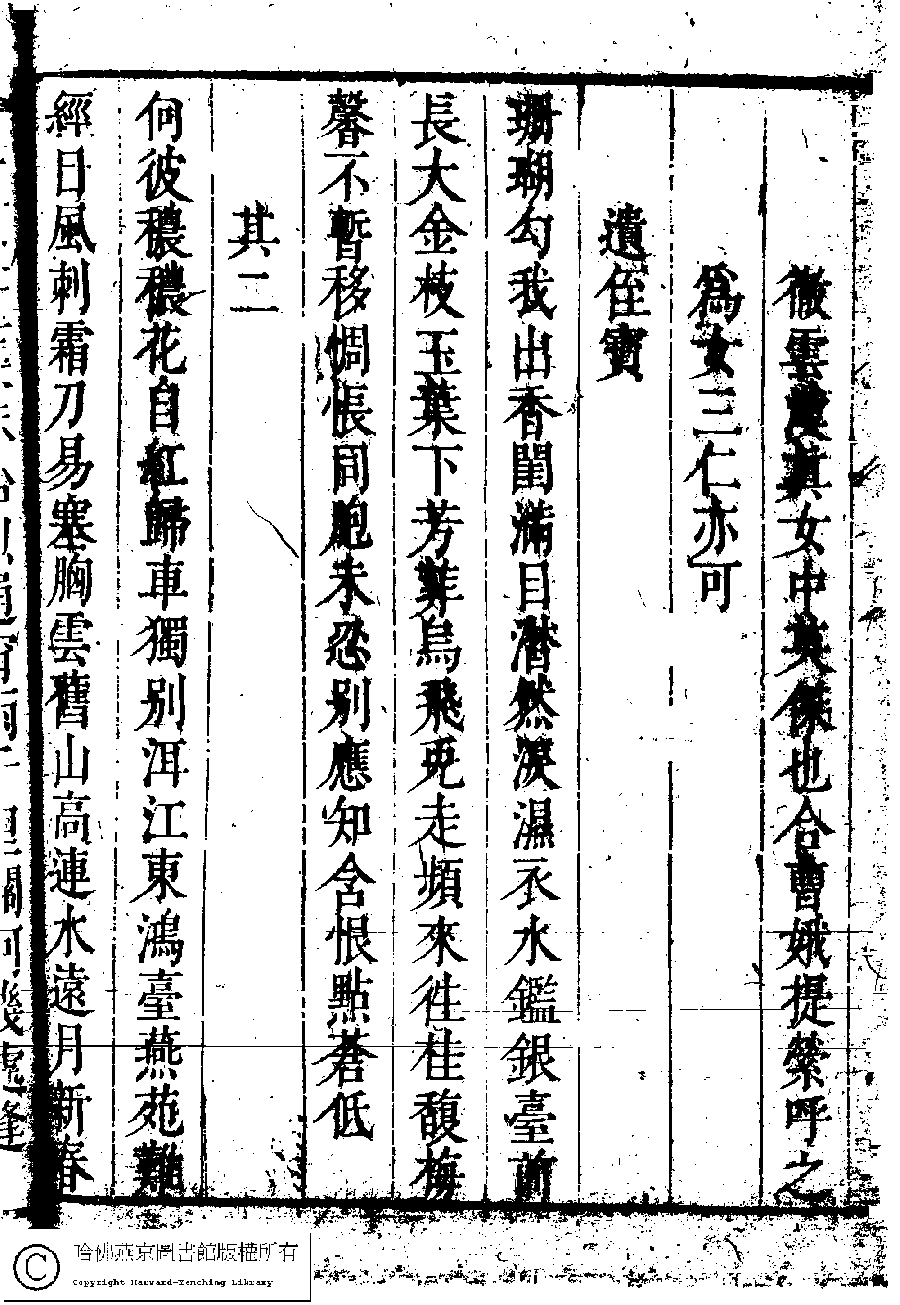 徹雲漢真女中英傑也合曹娥提縈呼之
爲女三仁亦可
遺侄寶
珊瑚勾我出香閨滿目潸然淚濕衣水鑑銀臺前
長大金枝玉葉下芳菲烏飛兎走頻來徃桂馥梅
馨不暫移惆悵同胞未忍别應知含恨點蒼低
其二
何彼穠穠花自紅歸車獨别洱江東鴻臺燕苑難
經日風刺霜刀易塞胸雲舊山高連水遠月新春
哈佛燕京圖書館版權所有
Copyright Harvard-Yenching Library